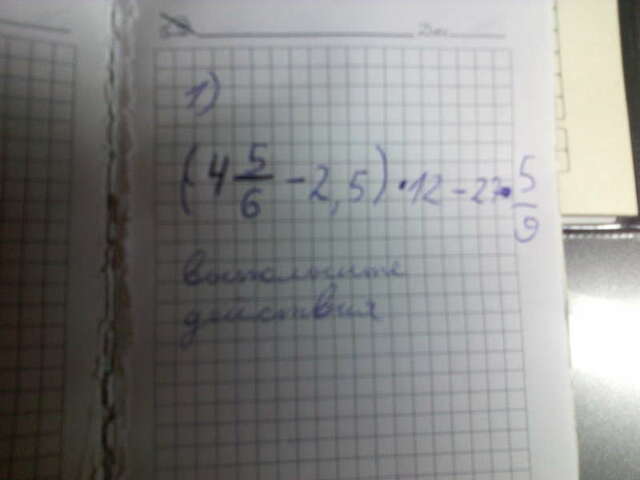 1)
(4 5/6 - 2,5) · 12 - 27 · 5/9
выполните
действия